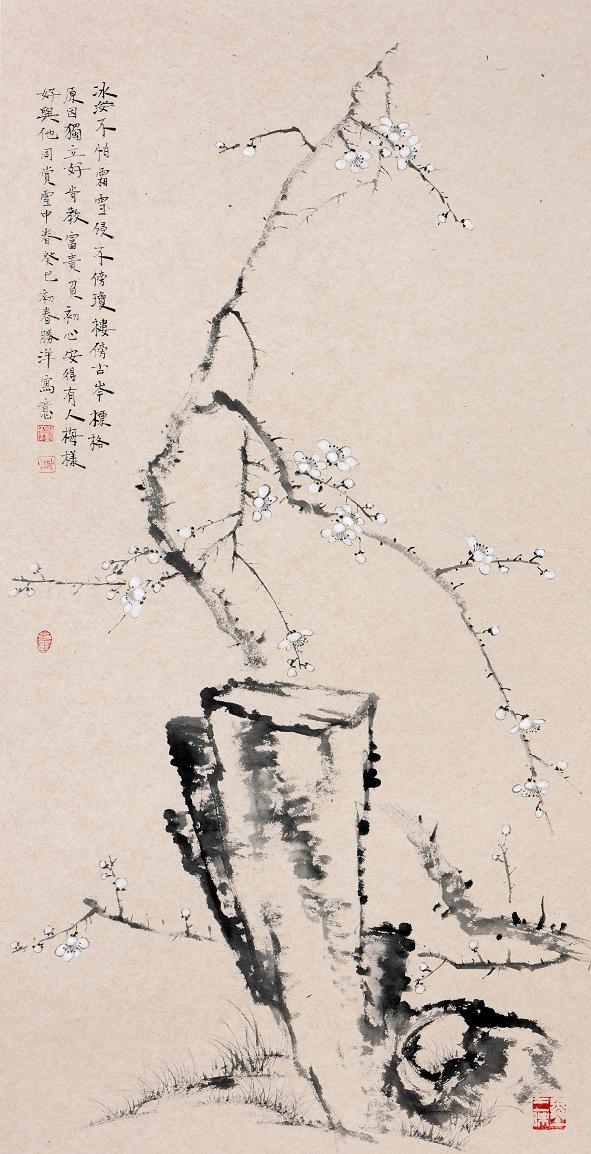 冰姿不怕霜雪侵不傍瓊樓傍古岑標格
原因獨立好肯教富貴負初心安得有人梅樣
好與他同賞雪中春癸巳初春勝洋寫意